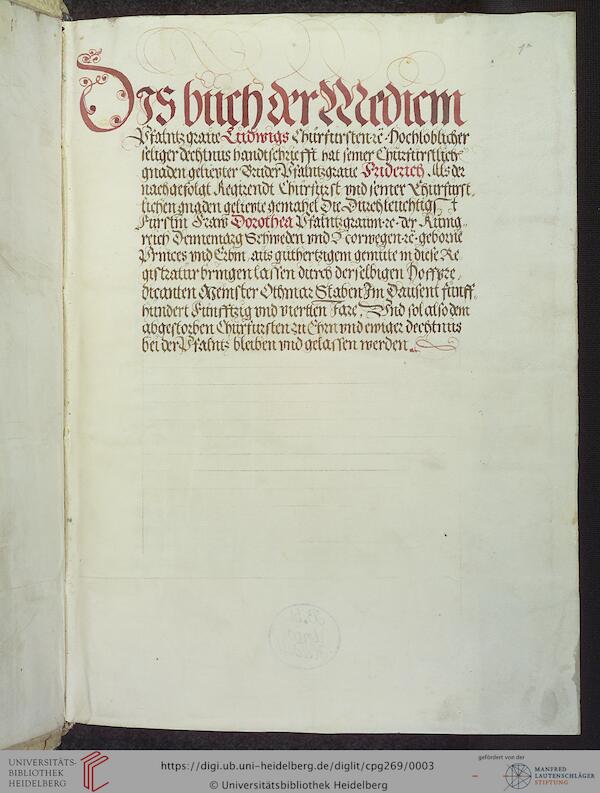 1r
Dis buch der Medicin
Pfaltnzgraue Ludwigs Churfursten ꝛc. Hochloblicher
seliger dechtnus handtschriefft hat seiner Churfurstlich
gnaden geliebter Bruder Pfaltnzgraue Friderich Als der
nachgefolgt Regirendt Churfurst vnd seiner Churfurst,
lichen gnaden geliepte gemahel Die Durchleuchtigst
Furstin Fraw Dorothea Pfaltnzgrauin ꝛc. der Kunig-
reich Dennemarg Schweden vnd Norwegen ꝛc. geborne
Princes vnd Erbin aus guthertzigem gemute in diese Re
gistratur bringen lassen durch derselbigen Hoffpre,
dicanten Meinster Othmar Staben Im Dausent funff
hundert Funfftzig vnd viertten Jare, Vnd sol also dem
abgestorben Churfursten zu Ehrn vnd ewiger dechtnus
bei der Pfaltnz bleiben vnd gelassen werden
UNIVERSITÄTS-
BIBLIOTHEK
HEIDELBERG
https://digi.ub.uni-heidelberg.de/diglit/cpg269/0003
© Universitätsbibliothek Heidelberg
gefördert von der
MANFRED
LAUTENSCHLÄGER
STIFTUNG